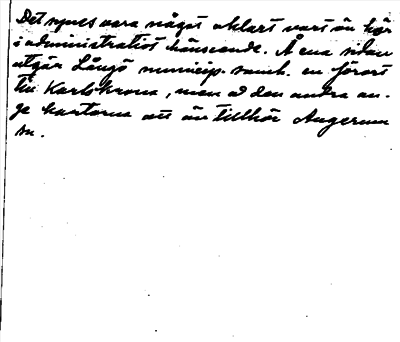 Det synes vara något oklart vart ön hör
i administrativt hänseende. Å ena sidan
utgör Långö municip. samh. en förort
till Karlskrona, men å den andra an-
ge kartorna att ön tillhör Augerum
sn.